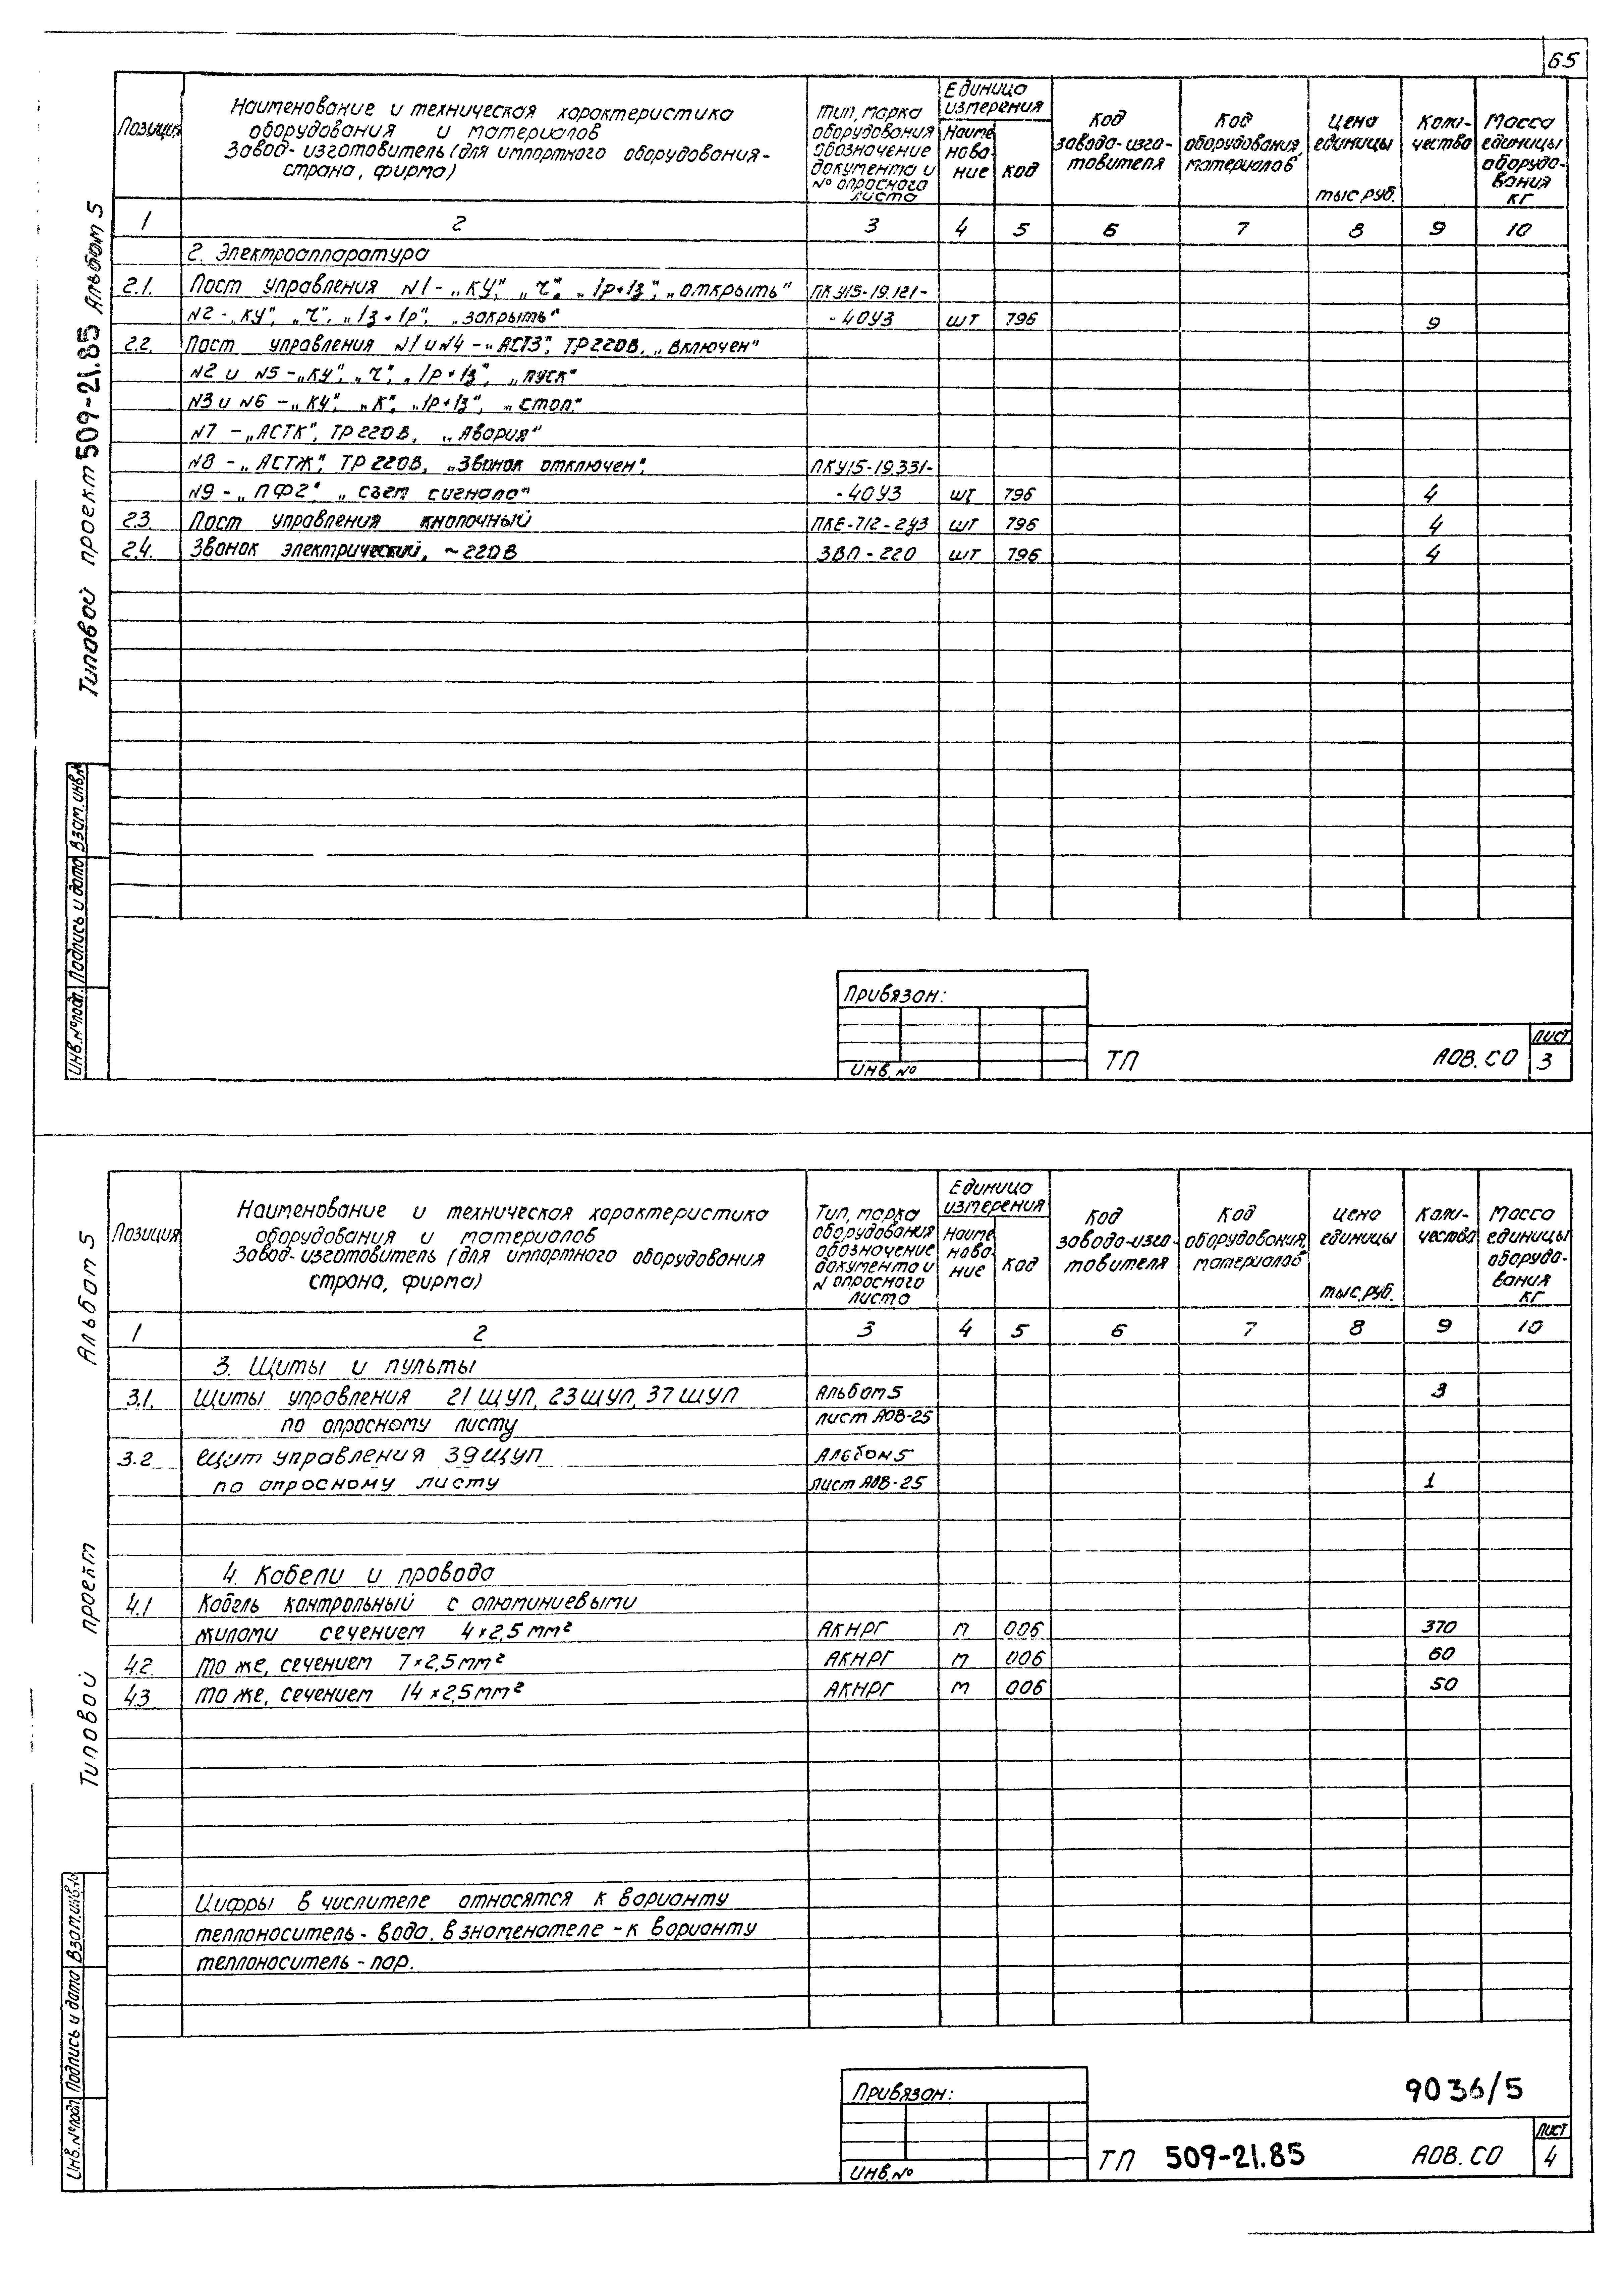 65
Типовой проект 509-21.85 Альбом 5
Позиция
Наименование и техническая характеристика
оборудования и материалов
Завод-изготовитель (для импортного оборудования-
страна, фирма)
Тип, марка
оборудования
обозначение
документа и
№ опросного
листа
Единица
измерения
Наиме
нова-
ние
код
Код
завода-изго-
товителя
Код
оборудования,
материалов
Цена
единицы
тыс. руб.
Коли-
чество
Масса
единицы
оборудо-
вания
кг
1 2 3 4 5 6 7 8 9 10
2. Электроаппаратура
2.1. Пост управления N1-„КУ", „Ч", „1р+1з", „открыть" ПКУ15-19.121-
N2-„КУ", „Ч", „1з+1р", „закрыть" -40У3 шт 796 9
2.2. Пост управления N1 и N4-„АСТЗ", ТР220В, „включен"
N2 и N5-„КУ", „Ч", „1р+1з", „пуск"
N3 и N6-„КУ", „К", „1р+1з", „стоп"
N7-„АСТК", ТР220В, „Авария"
N8-„АСТЖ", ТР220В, „Звонок отключен", ПКУ15-19.331-
N9-„ПФ2", „съем сигнала" -40У3 шт 796 4
2.3 Пост управления кнопочный ПКЕ-712-2У3 шт 796 4
2.4. Звонок электрический, ~220В ЗВП-220 шт 796 4
Взам. инв.№
Подпись и дата
Инв.№подл.
Привязан:
Инв.№
ТП АОВ.СО
Лист
3
Типовой проект Альбом 5
Позиция
Наименование и техническая характеристика
оборудования и материалов
Завод-изготовитель (для импортного оборудования
страна, фирма)
Тип, марка
оборудования
обозначение
документа и
N опросного
листа
Единица
измерения
Наиме
нова-
ние
код
Код
завода-изго-
товителя
Код
оборудования,
материалов
Цена
единицы
тыс. руб.
Коли-
чество
Масса
единицы
оборудо-
вания
кг
1 2 3 4 5 6 7 8 9 10
3. Щиты и пульты
3.1. Щиты управления 21ЩУП, 23ЩУП, 37ЩУП Альбом 5 3
по опросному листу лист АОВ-25
3.2 Щит управления 39ЩУП Альбом 5
по опросному листу лист АОВ-25 1
4. Кабели и провода
4.1 Кабель контрольный с алюминиевыми
жилами сечением 4×2,5мм² АКНРГ м 006 370
4.2 то же, сечением 7×2,5мм² АКНРГ м 006 60
4.3 то же, сечением 14×2,5мм² АКНРГ м 006 50
Цифры в числителе относятся к варианту
теплоноситель-вода, в знаменателе-к варианту
теплоноситель-пар.
Взам.инв.№
Подпись и дата
Инв.№подл
Привязан:
Инв.№
9036/5
ТП 509-21.85 АОВ.СО
Лист
4